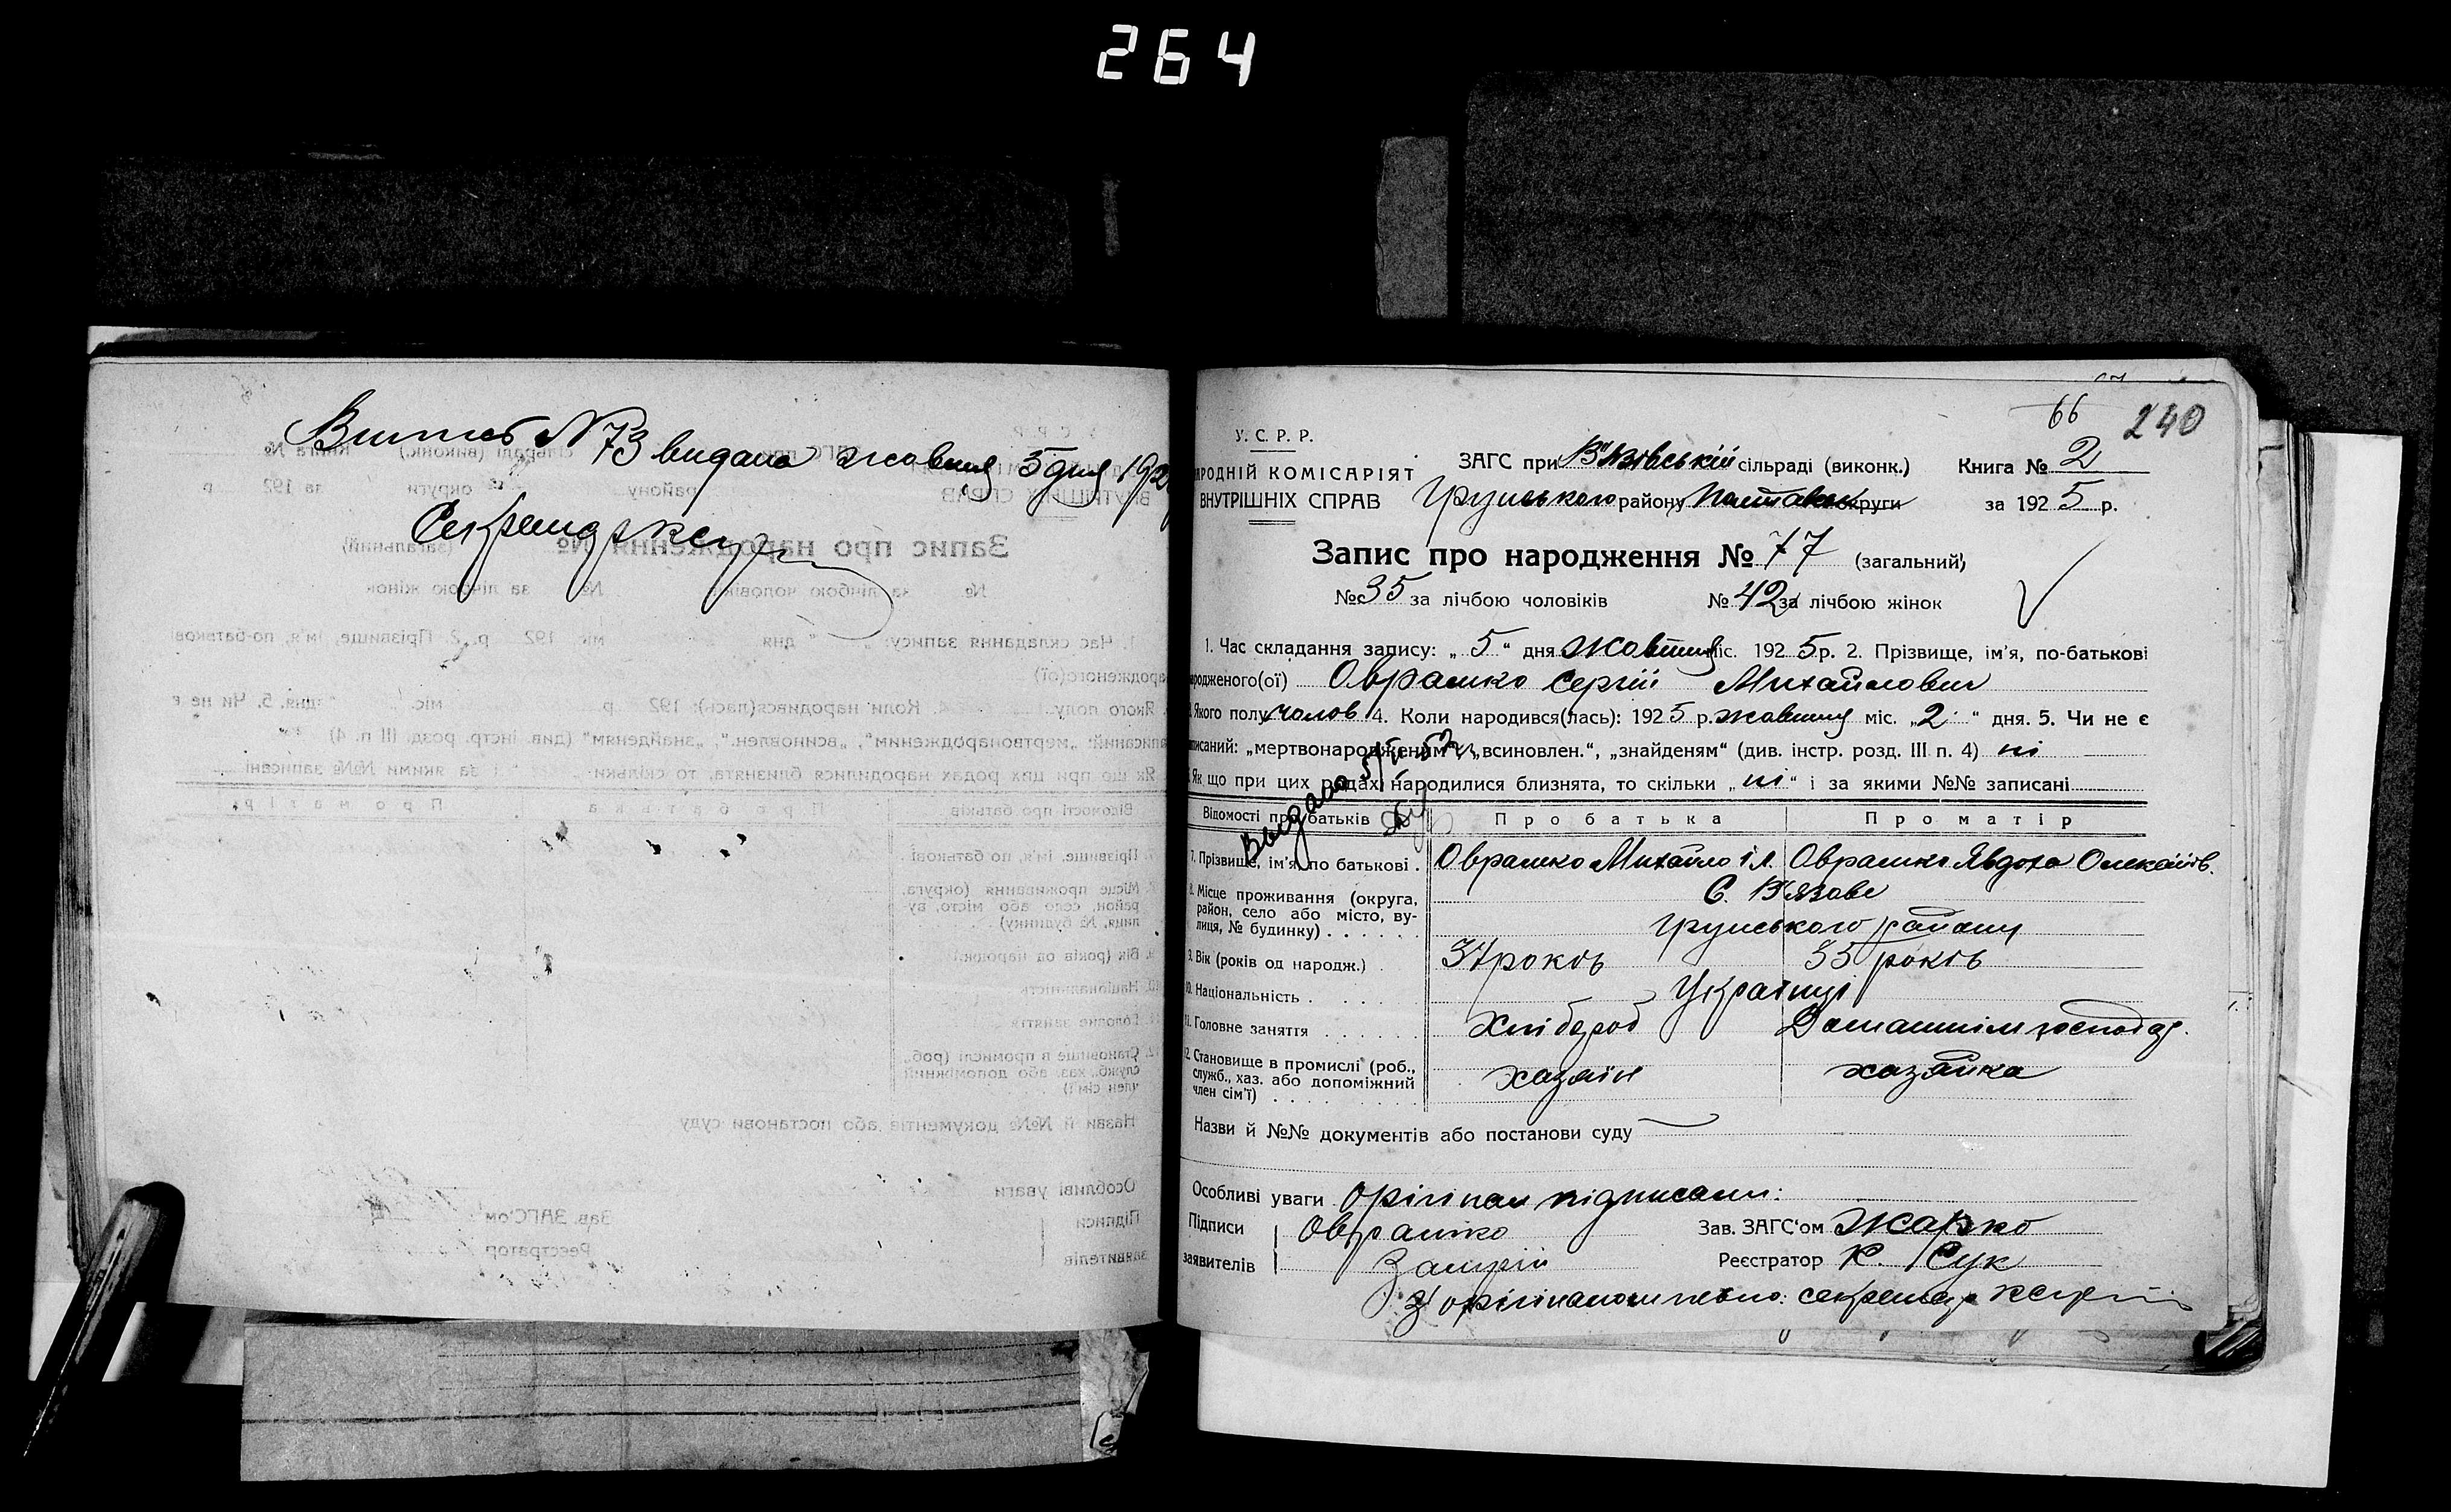 264
Виписъ № 73 видана жовтня 5 дня 192
Секретар
66 240
У. С. Р. Р.
НАРОДНІЙ КОМІСАРІЯТ
ВНУТРІШНІХ СПРАВ
ЗАГС при В'язівській сільраді (виконк.) Книга № 2
Грунського району округи за 1925 р.
Запис про народження № 77 (загальний)
№ 35 за лічбою чоловіків № 42 за лічбою жінок
1. Час складання запису: „ 5 “ дня Жовтня міс. 1925 р. 2. Прізвище, ім'я, по-батькові
народженого(ої) Оврашко Сергій Михайлович
3. Якого полу чолов 4. Коли народився(лась): 1925 р. жовтня міс. „ 2 “ дня. 5. Чи не є
записаний: „мертвонародженим“, „всиновлен.“, „знайденям“ (див. інстр. розд. III п. 4) ні
6. Як що при цих родах народилися близнята, то скільки „ ні “ і за якими №№ записані
Выдано
Відомості про батьків Про батька Про матір
7. Прізвище, ім'я, по батькові . Оврашко Михайло Оврашко Явдоха
8. Місце проживання (округа, район, село або місто, вулиця, № будинку) . . . . . . С. В'язове
Грунського району
9. Вік (років од народж.) . 37 років 35 років
10. Національність . . . . . Українці
11. Головне заняття . . . . . . Хлібороб Домашнім господар.
12. Становище в промислі (роб., служб., хаз. або допоміжний член сім'ї) . . . . . . . . хазяїн хазяйка
Назви й №№ документів або постанови суду
Особливі уваги Орігінал підписали:
Підписи Оврашко Зав. ЗАГС'ом Жарко
заявителів Реєстратор К. Сук
З орігіналом певно: секретар